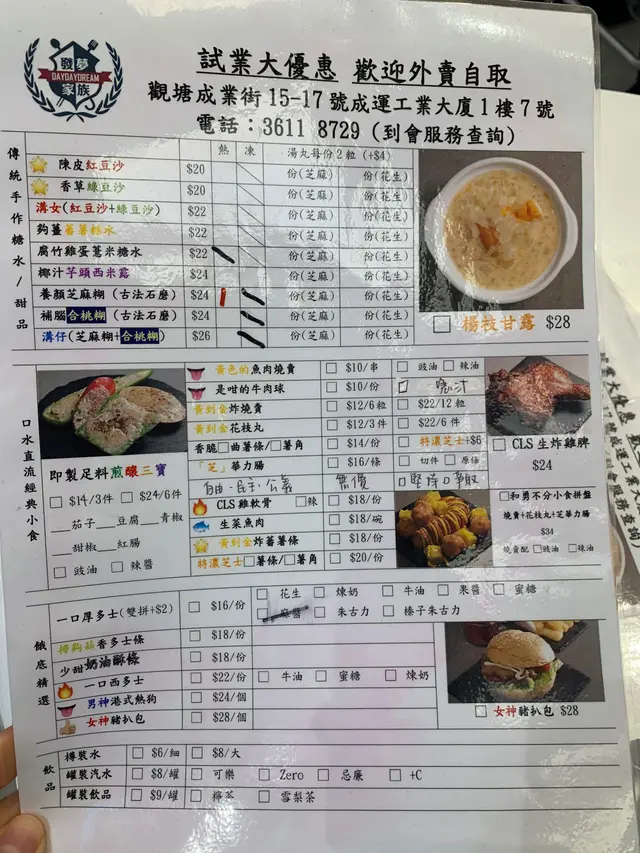 發夢
DAYDAYDREAM
家族
試業大優惠 歡迎外賣自取
觀塘成業街 15-17 號成運工業大廈 1 樓 7 號
電話：3611 8729 (到會服務查詢)
傳統手作糖水/甜品
熱 凍 湯丸每份2粒 (+$4)
陳皮紅豆沙 $20 份(芝麻) 份(花生)
香草綠豆沙 $20 份(芝麻) 份(花生)
溝女(紅豆沙+綠豆沙) $22 份(芝麻) 份(花生)
夠薑蕃薯糖水 $22 份(芝麻) 份(花生)
腐竹雞蛋薏米糖水 $22 份(芝麻) 份(花生)
椰汁芋頭西米露 $24 份(芝麻) 份(花生)
養顏芝麻糊 (古法石磨) $24 份(芝麻) 份(花生)
補腦合桃糊 (古法石磨) $24 份(芝麻) 份(花生)
溝仔(芝麻糊+合桃糊) $26 份(芝麻) 份(花生)
楊枝甘露 $28
口水直流經典小食
即製足料煎釀三寶
$14/3件 $24/6件
茄子 豆腐 青椒
甜椒 紅腸
豉油 辣醬
黃色的魚肉燒賣 $10/串 豉油 辣油
是咁的牛肉球 $10/份 喼汁
黃到金炸燒賣 $12/6粒 $22/12粒
黃到金花枝丸 $12/3件 $22/6件
香脆 曲薯條/ 薯角 $14/份 特濃芝士+$6
「芝」華力腸 $16/條 切件 原條
自由·民主·公義
CLS 雞軟骨 辣 $18/份
生菜魚肉 $18/碗
黃到金炸蕃薯條 $18/份
特濃芝士 薯條/ 薯角 $20/份
CLS 生炸雞髀
$24
和勇不分小食拼盤
燒賣+花枝丸+芝華力腸
$34
燒賣配 豉油 辣油
餓底精選
一口厚多士(雙拼+$2) $16/份 花生 煉奶 牛油 果醬 蜜糖
麻醬 朱古力 榛子朱古力
香多士條 $18/份
少甜奶油酥條 $18/份
一口西多士 $22/份 牛油 蜜糖 煉奶
男神港式熱狗 $24/個
女神豬扒包 $28/個
女神豬扒包 $28
飲品
樽裝水 $6/細 $8/大
罐裝汽水 $8/罐 可樂 Zero 忌廉 +C
罐裝飲品 $9/罐 檸茶 雪梨茶